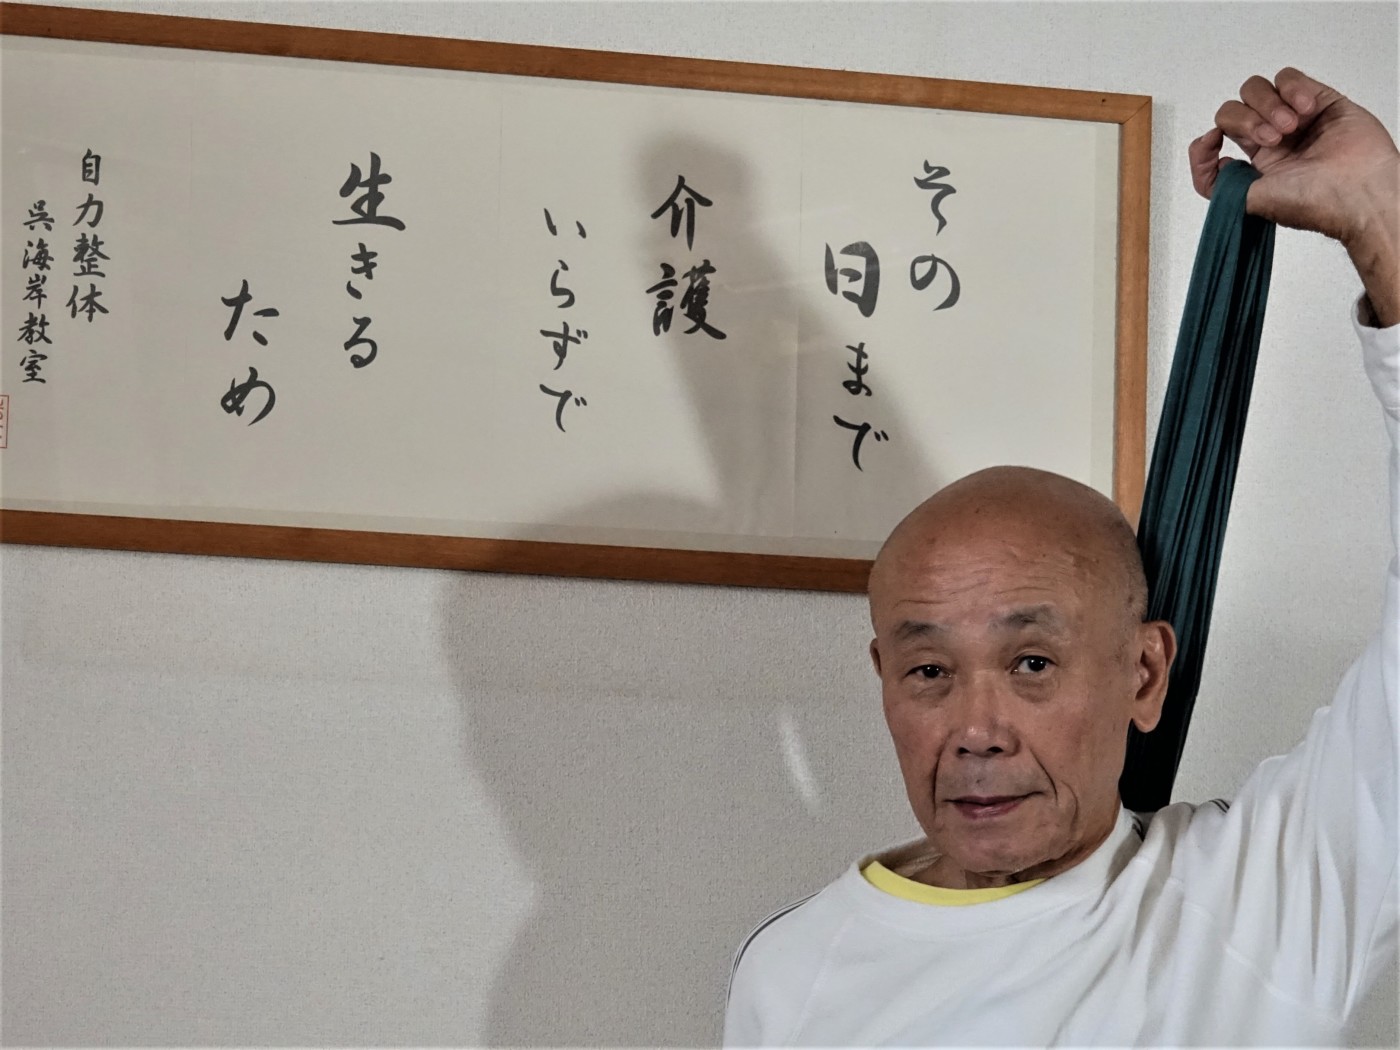 その
日まで
介護
いらずで
生きる
ため
自力整体
呉海岸教室